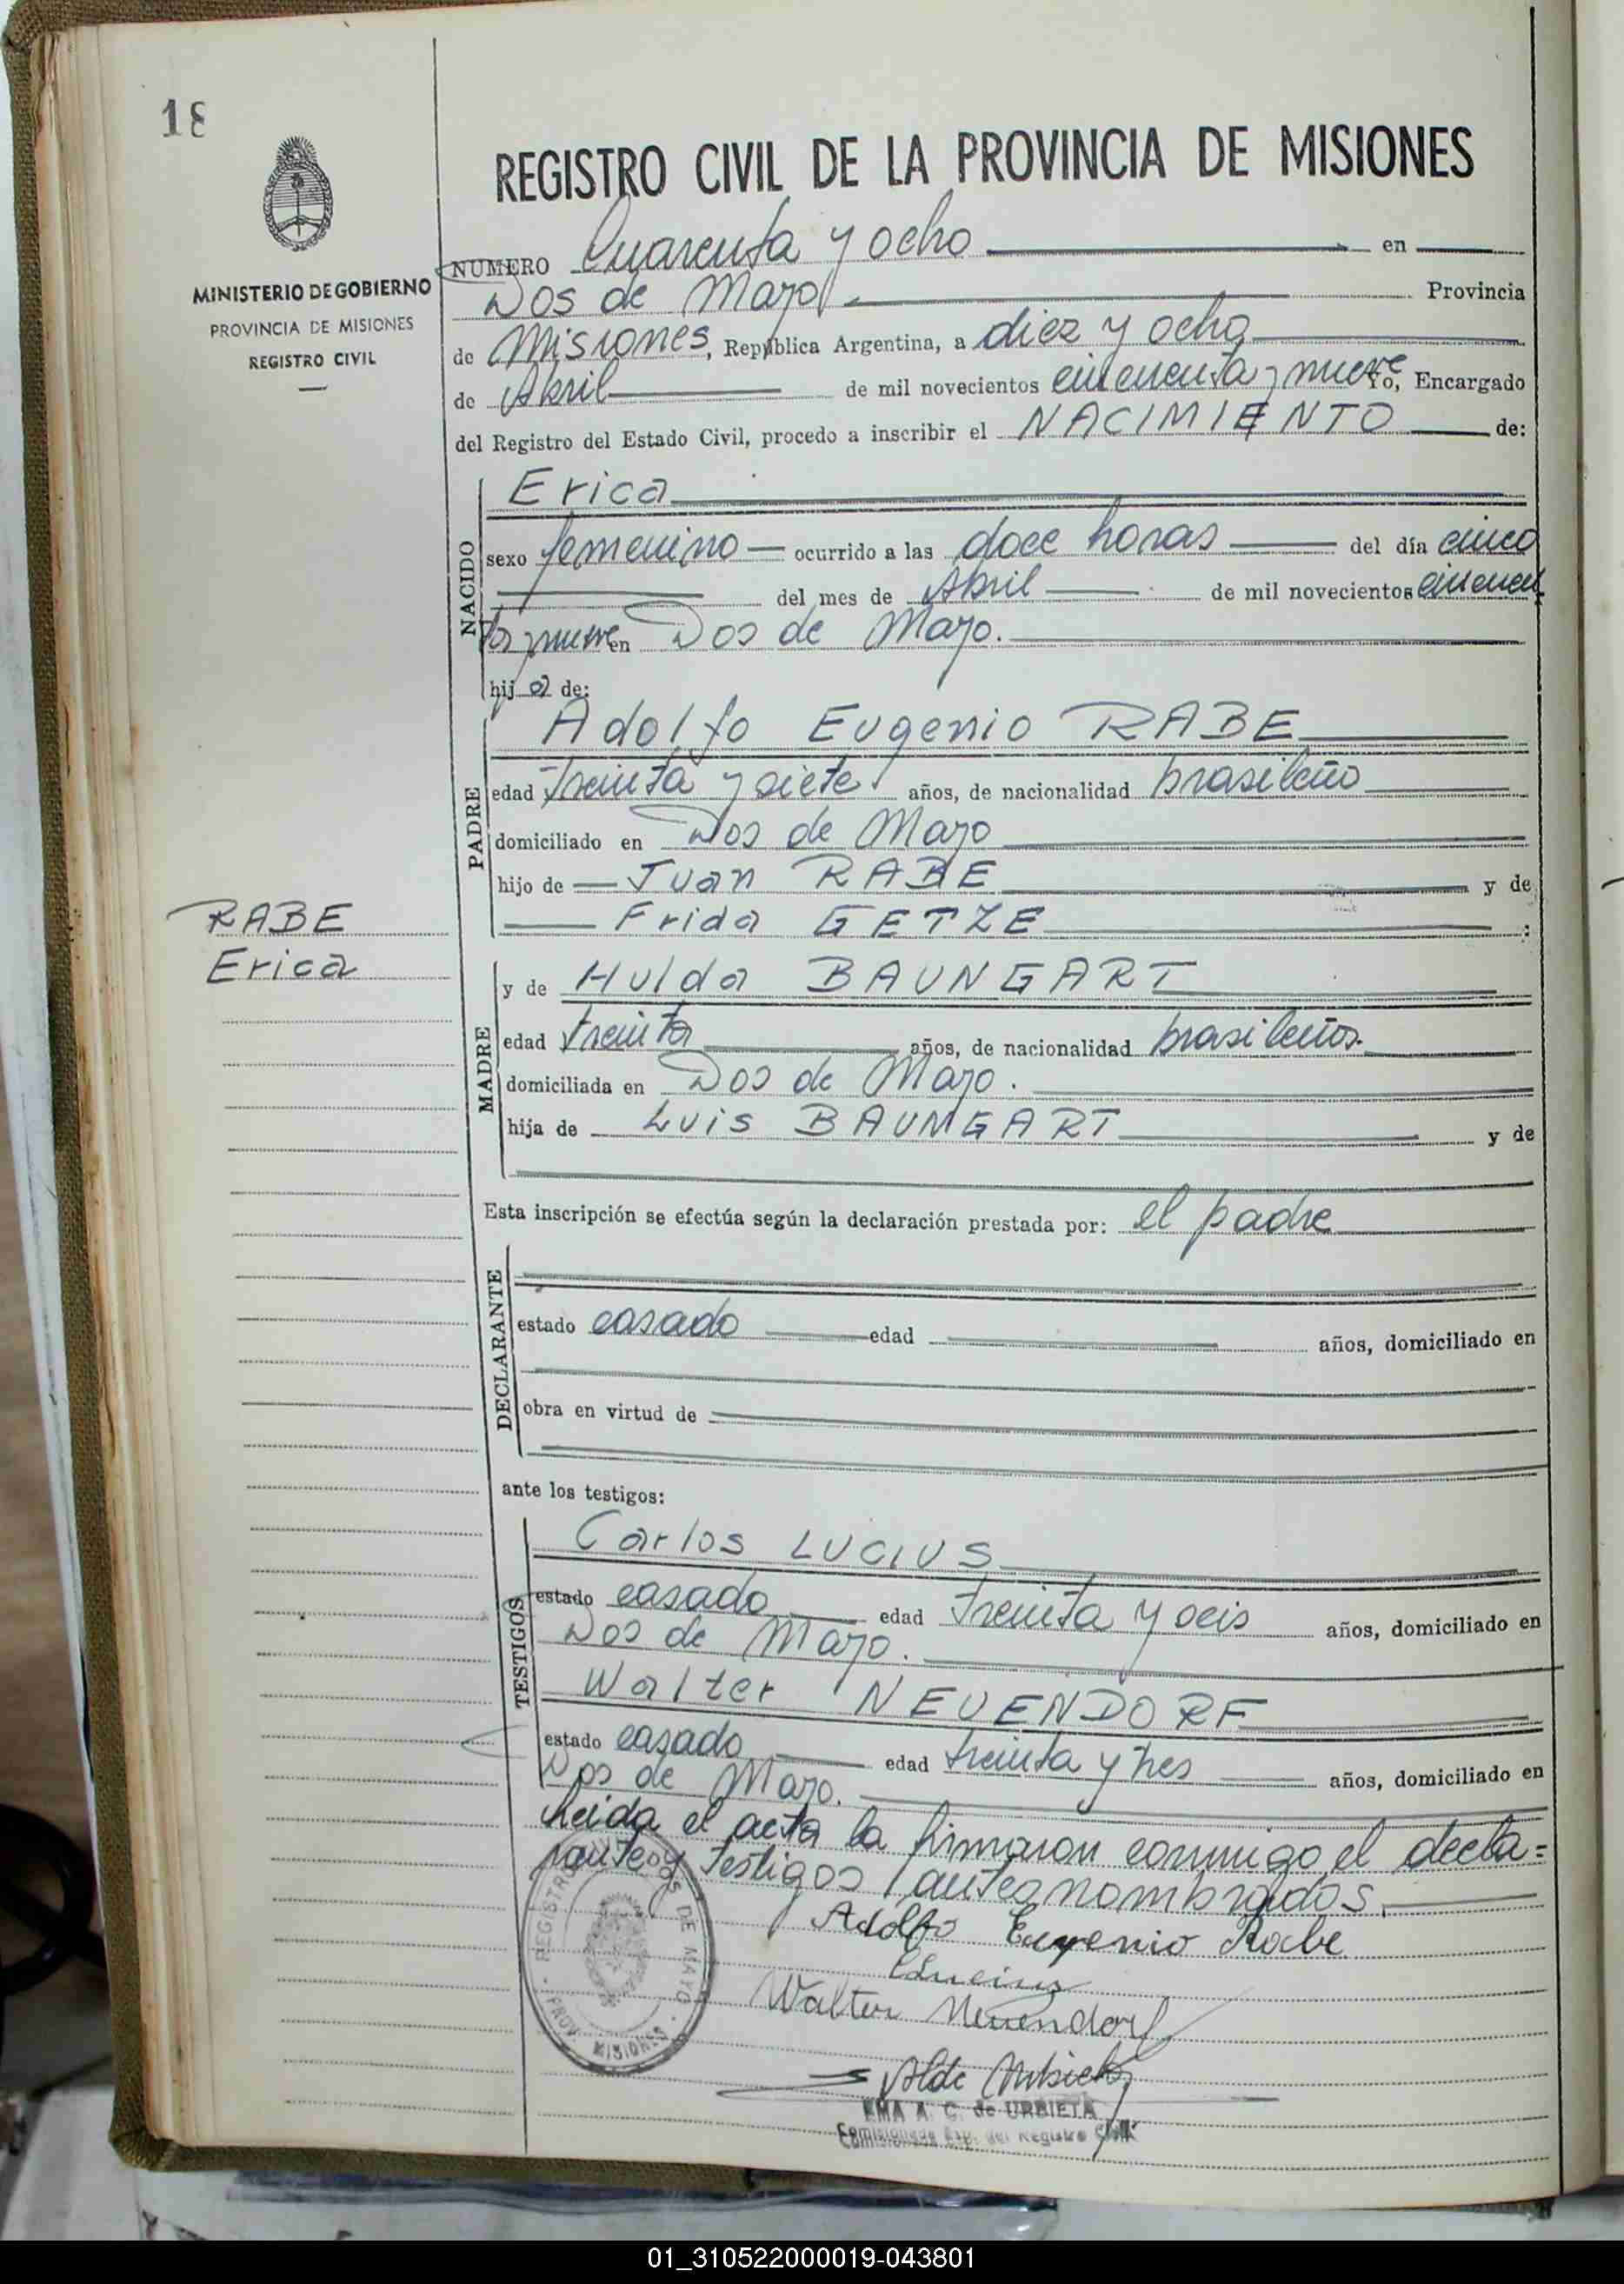 18
REGISTRO CIVIL DE LA PROVINCIA DE MISIONES
MINISTERIO DE GOBIERNO
PROVINCIA DE MISIONES
REGISTRO CIVIL
NUMERO Cuarenta y ocho en
Dos de Mayo Provincia
de Misiones, República Argentina, a diez y ocho
de Abril de mil novecientos cincuenta y nueve Yo, Encargado
del Registro del Estado Civil, procedo a inscribir el NACIMIENTO de:
NACIDO
Erica
sexo femenino ocurrido a las doce horas del día cinco
del mes de Abril de mil novecientos cincuen
ta y nueve en Dos de Mayo.
hij a de:
PADRE
Adolfo Eugenio RABE
edad treinta y siete años, de nacionalidad brasileño
domiciliado en Dos de Mayo
hijo de Juan RABE y de
Frida GETZE :
RABE
Erica
MADRE
y de Hulda BAUNGART
edad treinta años, de nacionalidad brasileña.
domiciliada en Dos de Mayo.
hija de Luis BAUMGART y de
Esta inscripción se efectúa según la declaración prestada por: el padre
DECLARANTE
estado casado edad años, domiciliado en
obra en virtud de
ante los testigos:
TESTIGOS
Carlos LUCIUS
estado casado edad treinta y seis años, domiciliado en
Dos de Mayo.
Walter NEUENDORF
estado casado edad treinta y tres años, domiciliado en
Dos de Mayo.
Leida el acta la firmaron conmigo el decla=
rante y testigos antesnombrados.
Adolfo Eugenio Rabe
CLucius
Walter Neuendorf
REGISTRO DOS DE MAYO
PROV. MISIONES
EMA A. C. de URBIETA
Comisionada Esp. del Registro Civil
01_310522000019-043801